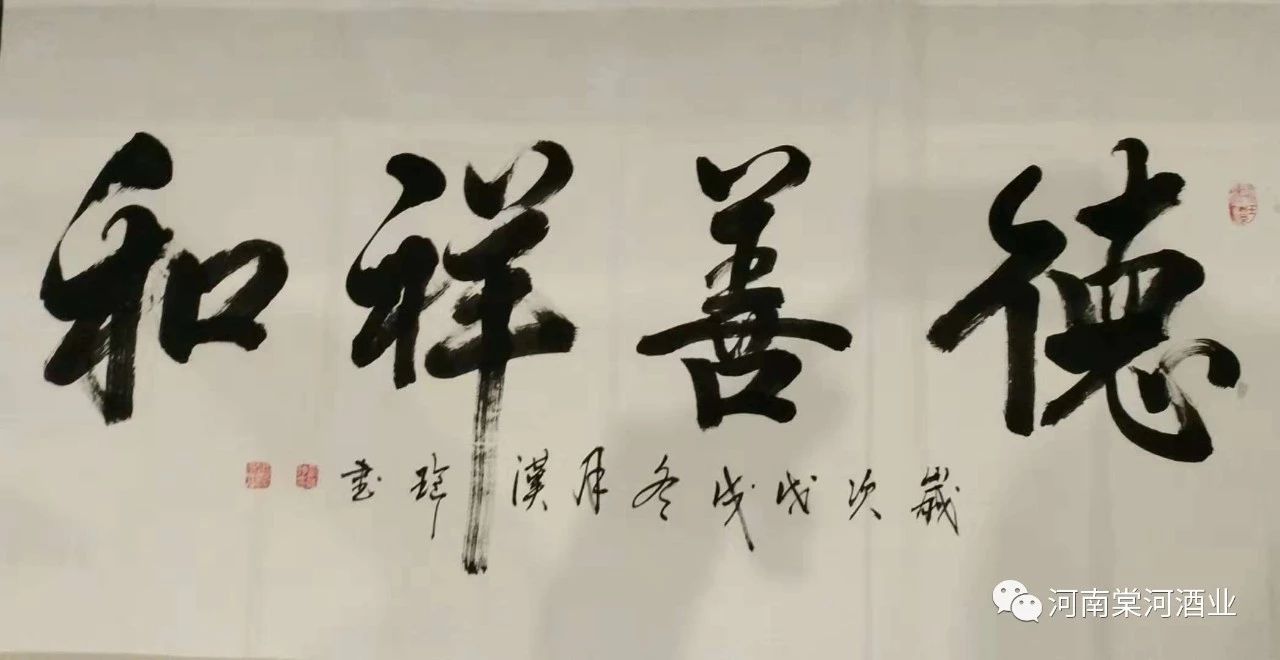 德善祥和
歲次戊戌冬月漢
書
河南棠河酒业